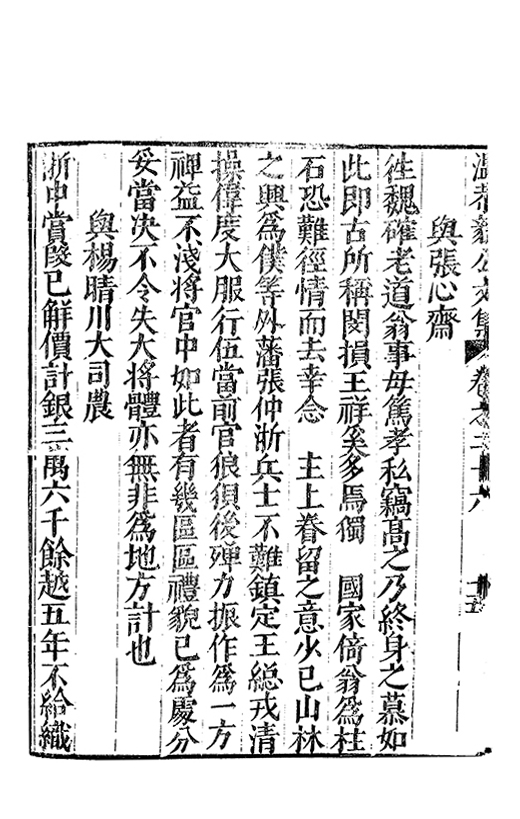 溫恭毅公文集 卷之二十六
與張心齋
往魏確老道翁事母篤孝私竊高之乃終身之慕如
此即古所稱閔損王祥奚多焉獨 國家倚翁爲柱
石恐難徑情而去幸念 主上眷留之意少已山林
之興爲僕等外藩張仲浙兵士不難鎮定王總戎清
操偉度大服行伍當前官狼狽後殫力振作爲一方
裨益不淺將官中如此者有幾區區禮貌已爲處分
妥當决不令失大將體亦無非爲地方計也
與楊晴川大司農
浙中賞叚已解價計銀三萬六千餘越五年不給織